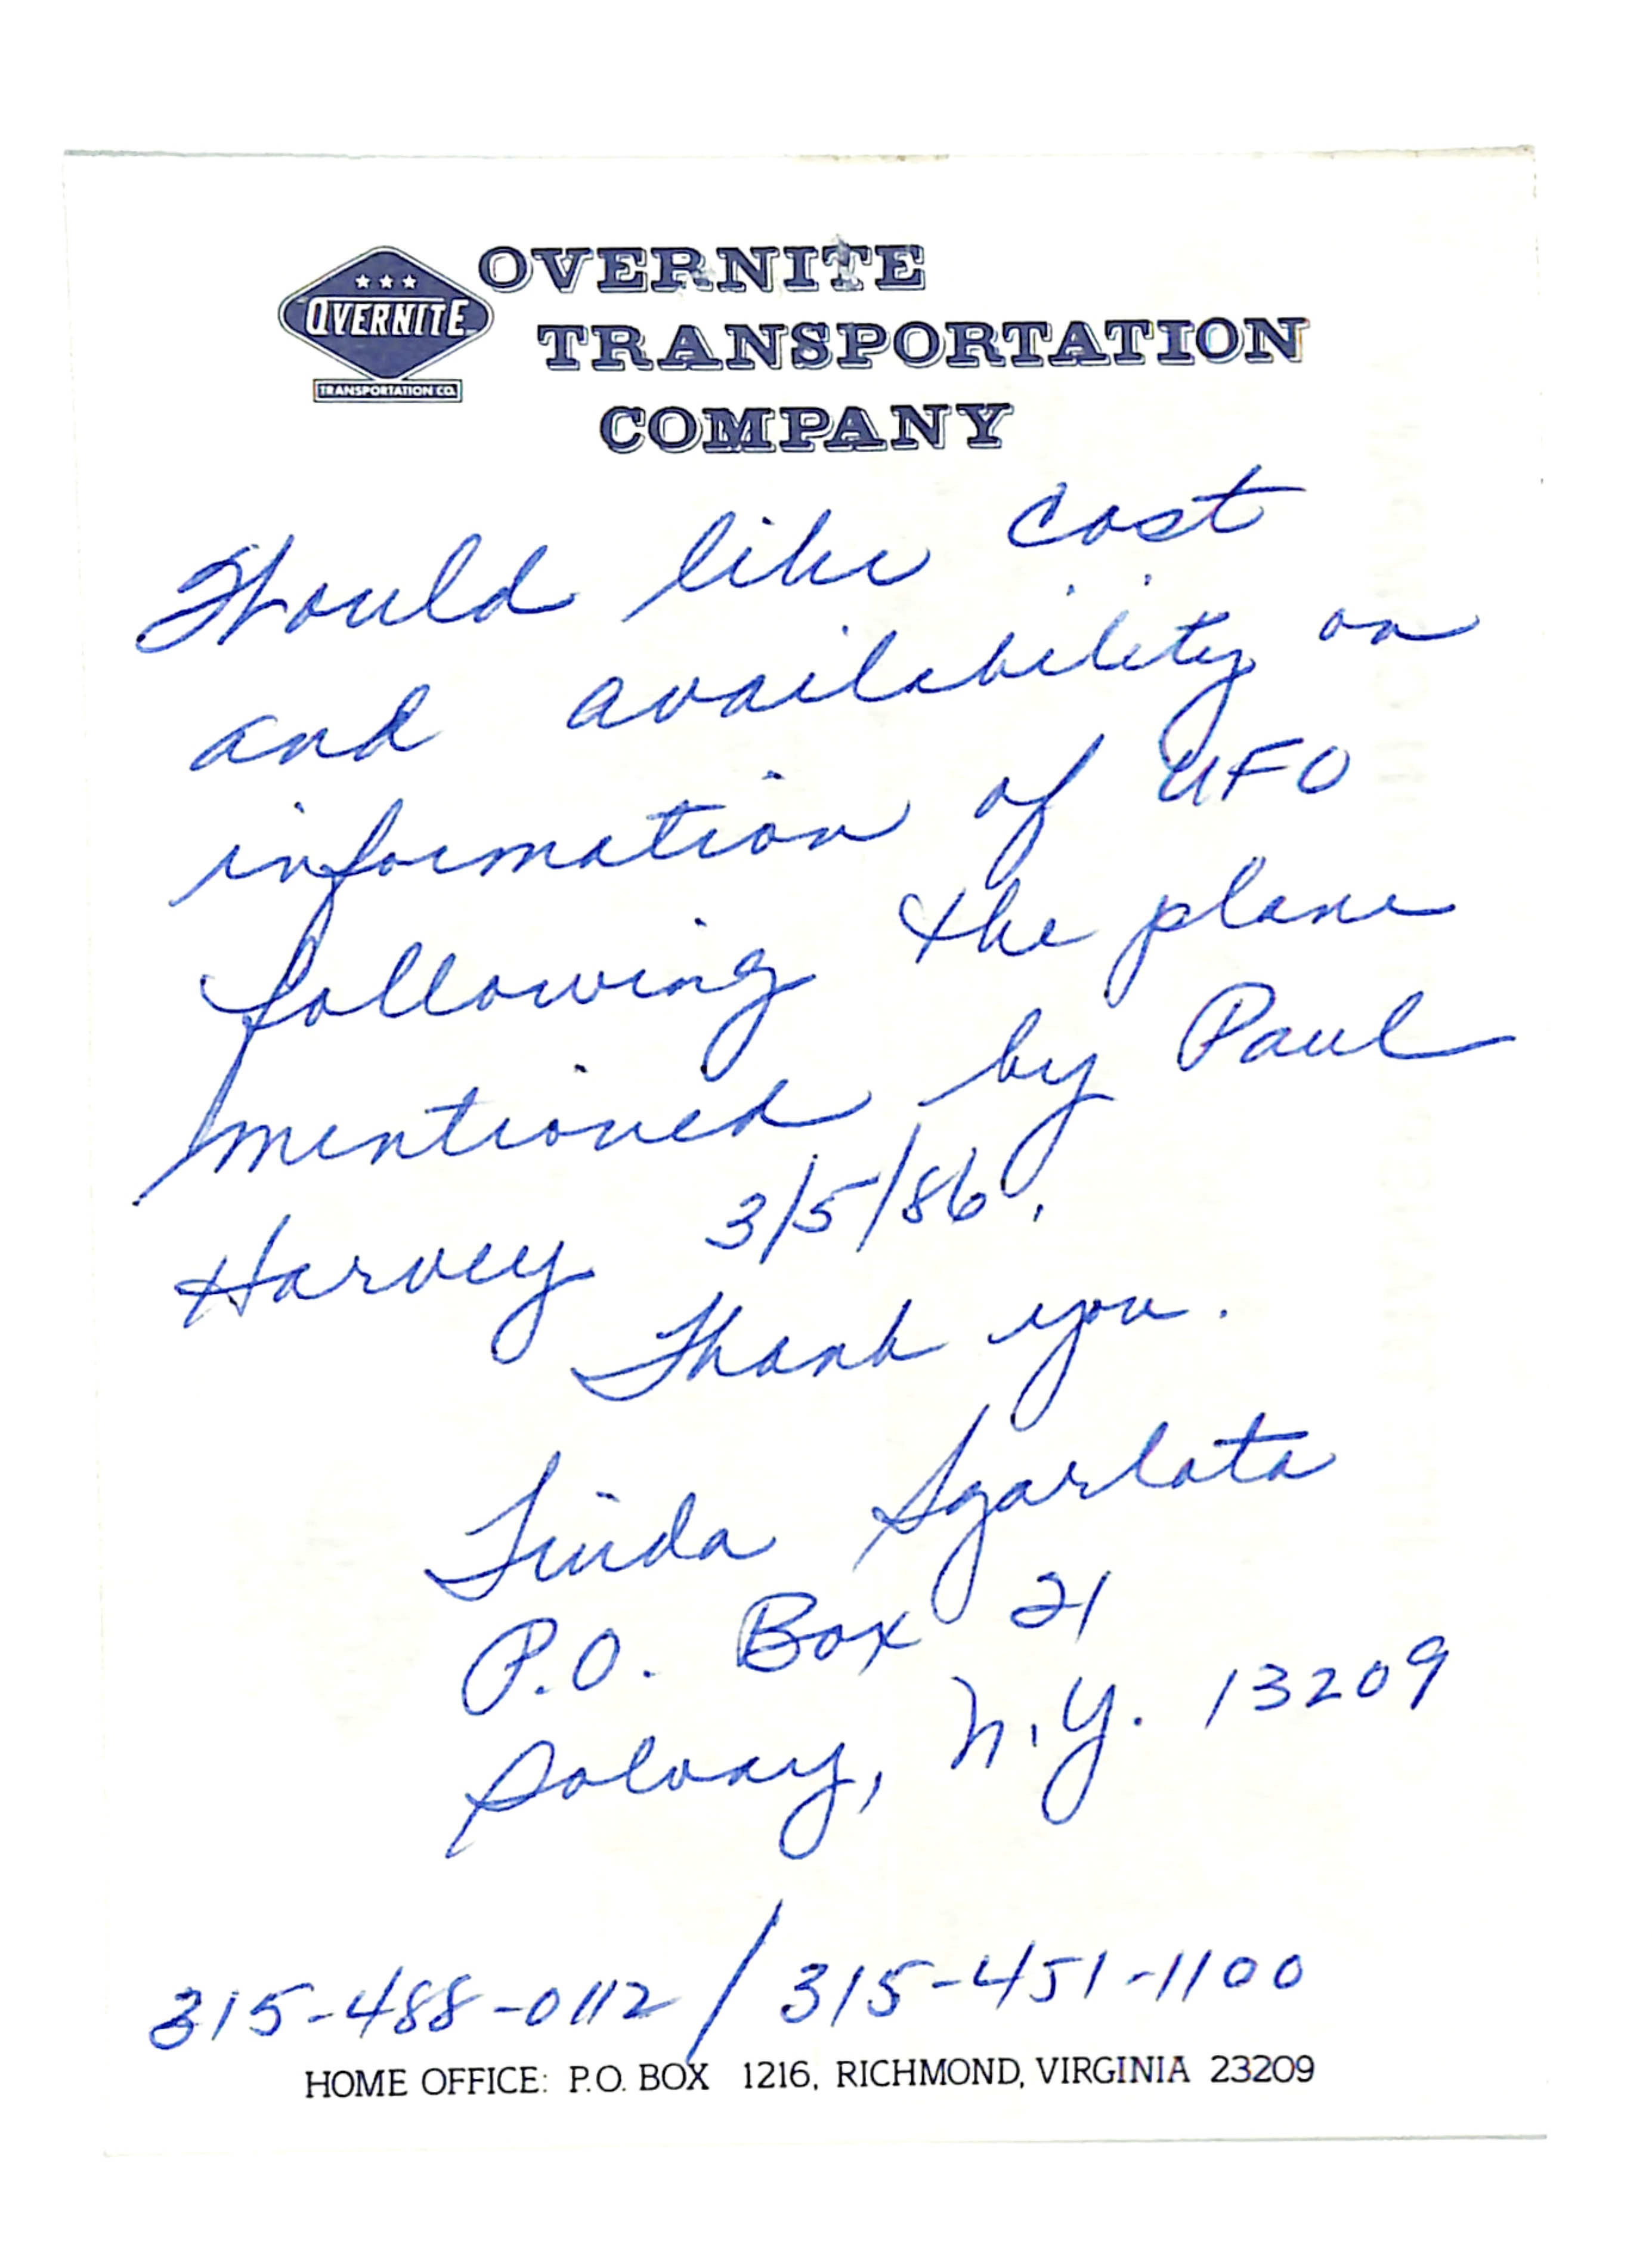 ★★★
OVERNITE
TRANSPORTATION CO.
OVERNITE
TRANSPORTATION
COMPANY
Would like cost
and availability on
information of UFO
following the plane
mentioned by Paul
Harvey 3/5/86.
Thank you.
Linda Sgarlata
P.O. Box 21
Solvay, N.Y. 13209
315-488-0112 / 315-451-1100
HOME OFFICE: P.O. BOX 1216, RICHMOND, VIRGINIA 23209